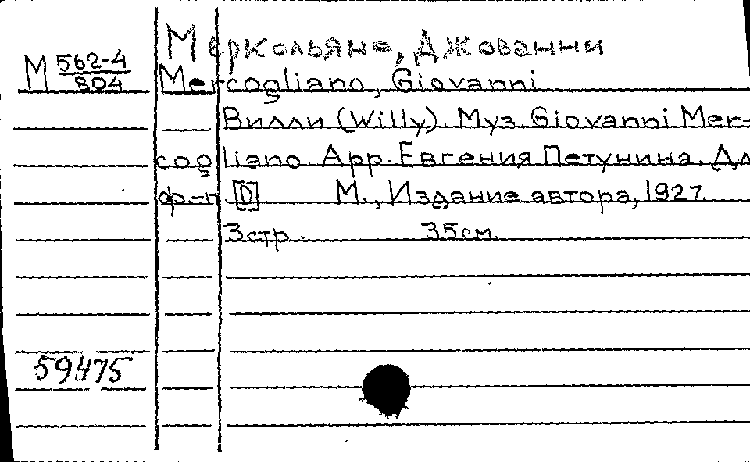 Меркольяно, Джованни
М 562-4/804
Mercogliano, Giovanni
Вилли (Willy). Муз. Giovanni Mer-
cogliano. Арр. Евгения Петунина. Дл
ф-п [D] М., Издание автора, 1927.
3 стр. 35 см.
59475